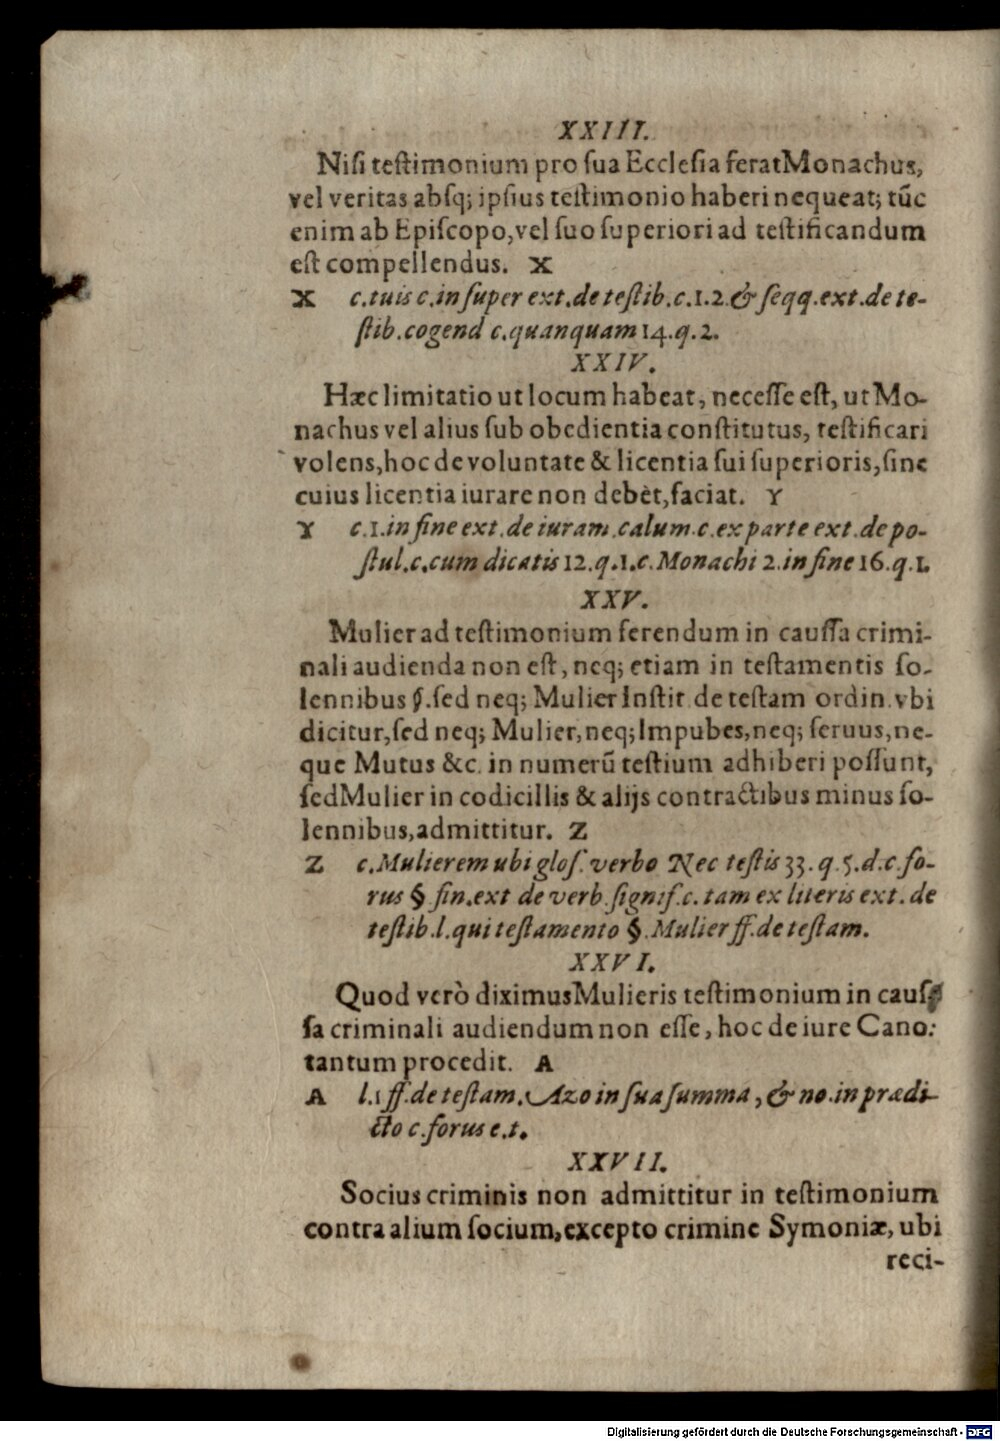 XXIII.
Niſi teſtimonium pro ſua Eccleſia ferat Monachus,
vel veritas abſq; ipſius teſtimonio haberi nequeat; tũc
enim ab Epiſcopo, vel ſuo ſuperiori ad teſtificandum
eſt compellendus. X
X c. tuis c. in ſuper ext. de teſtib. c. 1. 2. & ſeqq. ext. de te-
ſtib. cogend c. quanquam 14. q. 2.
XXIV.
Hæc limitatio ut locum habeat, neceſſe eſt, ut Mo-
nachus vel alius ſub obedientia conſtitutus, teſtificari
volens, hoc de voluntate & licentia ſui ſuperioris, ſine
cuius licentia iurare non debèt, faciat. Y
Y c. 1. in fine ext. de iuram. calum. c. ex parte ext. de po-
ſtul. c. cum dicatis 12. q. 1. c. Monachi 2. in fine 16. q. 1.
XXV.
Mulier ad teſtimonium ferendum in cauſſa crimi-
nali audienda non eſt, neq; etiam in teſtamentis ſo-
lennibus §. ſed neq; Mulier Inſtit. de teſtam ordin. vbi
dicitur, ſed neq; Mulier, neq; Impubes, neq; ſeruus, ne-
que Mutus &c. in numerũ teſtium adhiberi poſſunt,
ſed Mulier in codicillis & alijs contractibus minus ſo-
lennibus, admittitur. Z
Z c. Mulierem ubi gloſ. verbo Nec teſtis 33. q. 5. d. c. fo-
rus § fin. ext de verb. ſignif. c. tam ex literis ext. de
teſtib. l. qui teſtamento §. Mulier ff. de teſtam.
XXVI.
Quod verò diximus Mulieris teſtimonium in cauſ-
ſa criminali audiendum non eſſe, hoc de iure Cano:
tantum procedit. A
A l. 1 ff. de teſtam. Azo in ſua ſumma, & no. in prædi-
cto c. forus e. t.
XXVII.
Socius criminis non admittitur in teſtimonium
contra alium ſocium, excepto crimine Symoniæ, ubi
reci-
Digitalisierung gefördert durch die Deutsche Forschungsgemeinschaft - DFG